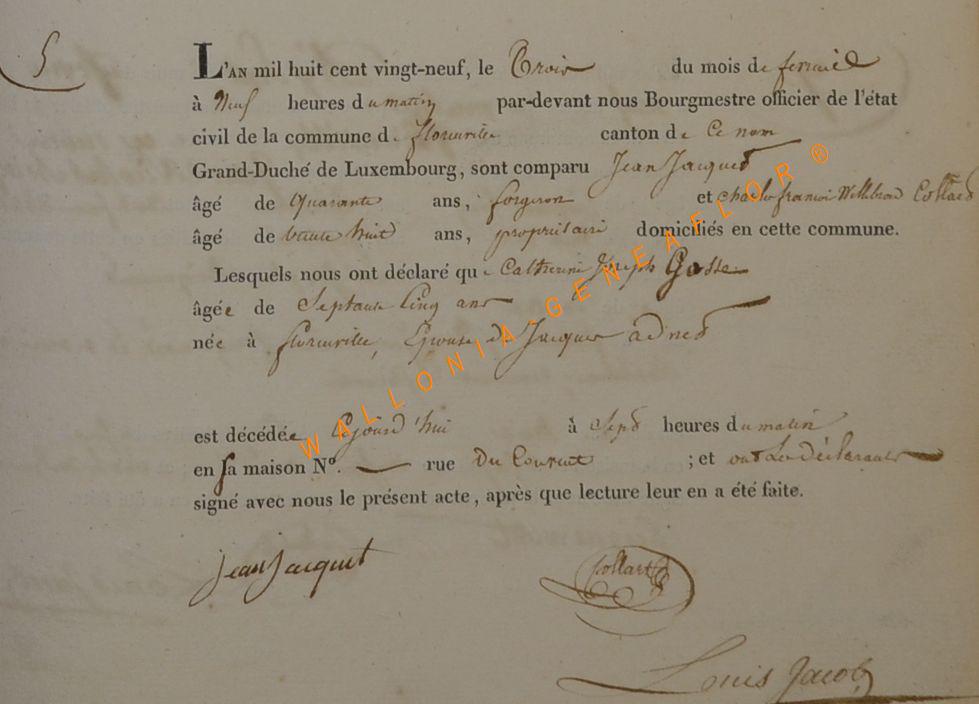 5
L'AN mil huit cent vingt-neuf, le Trois du mois de fevrier
à Neuf heures du matin par-devant nous Bourgmestre officier de l'état
civil de la commune de florenville canton de Ce nom
Grand-Duché de Luxembourg, sont comparu Jean Jacquet
âgé de Quarante ans, forgeron et charles francois Willibrord Collard
âgé de trente huit ans, propriétaire domiciliés en cette commune.
Lesquels nous ont déclaré que Catherine Joseph Gosse
âgée de Septante Cinq ans
née à florenville, Epouse de Jacques adnet
est décédée Cejourd'hui à Sept heures du matin
en sa maison N°. rue Du Couvent ; et ont Les déclarants
signé avec nous le présent acte, après que lecture leur en a été faite.
jean jacquet Collart
Louis Jacob
WALLONIA-GENEAFLOR ®